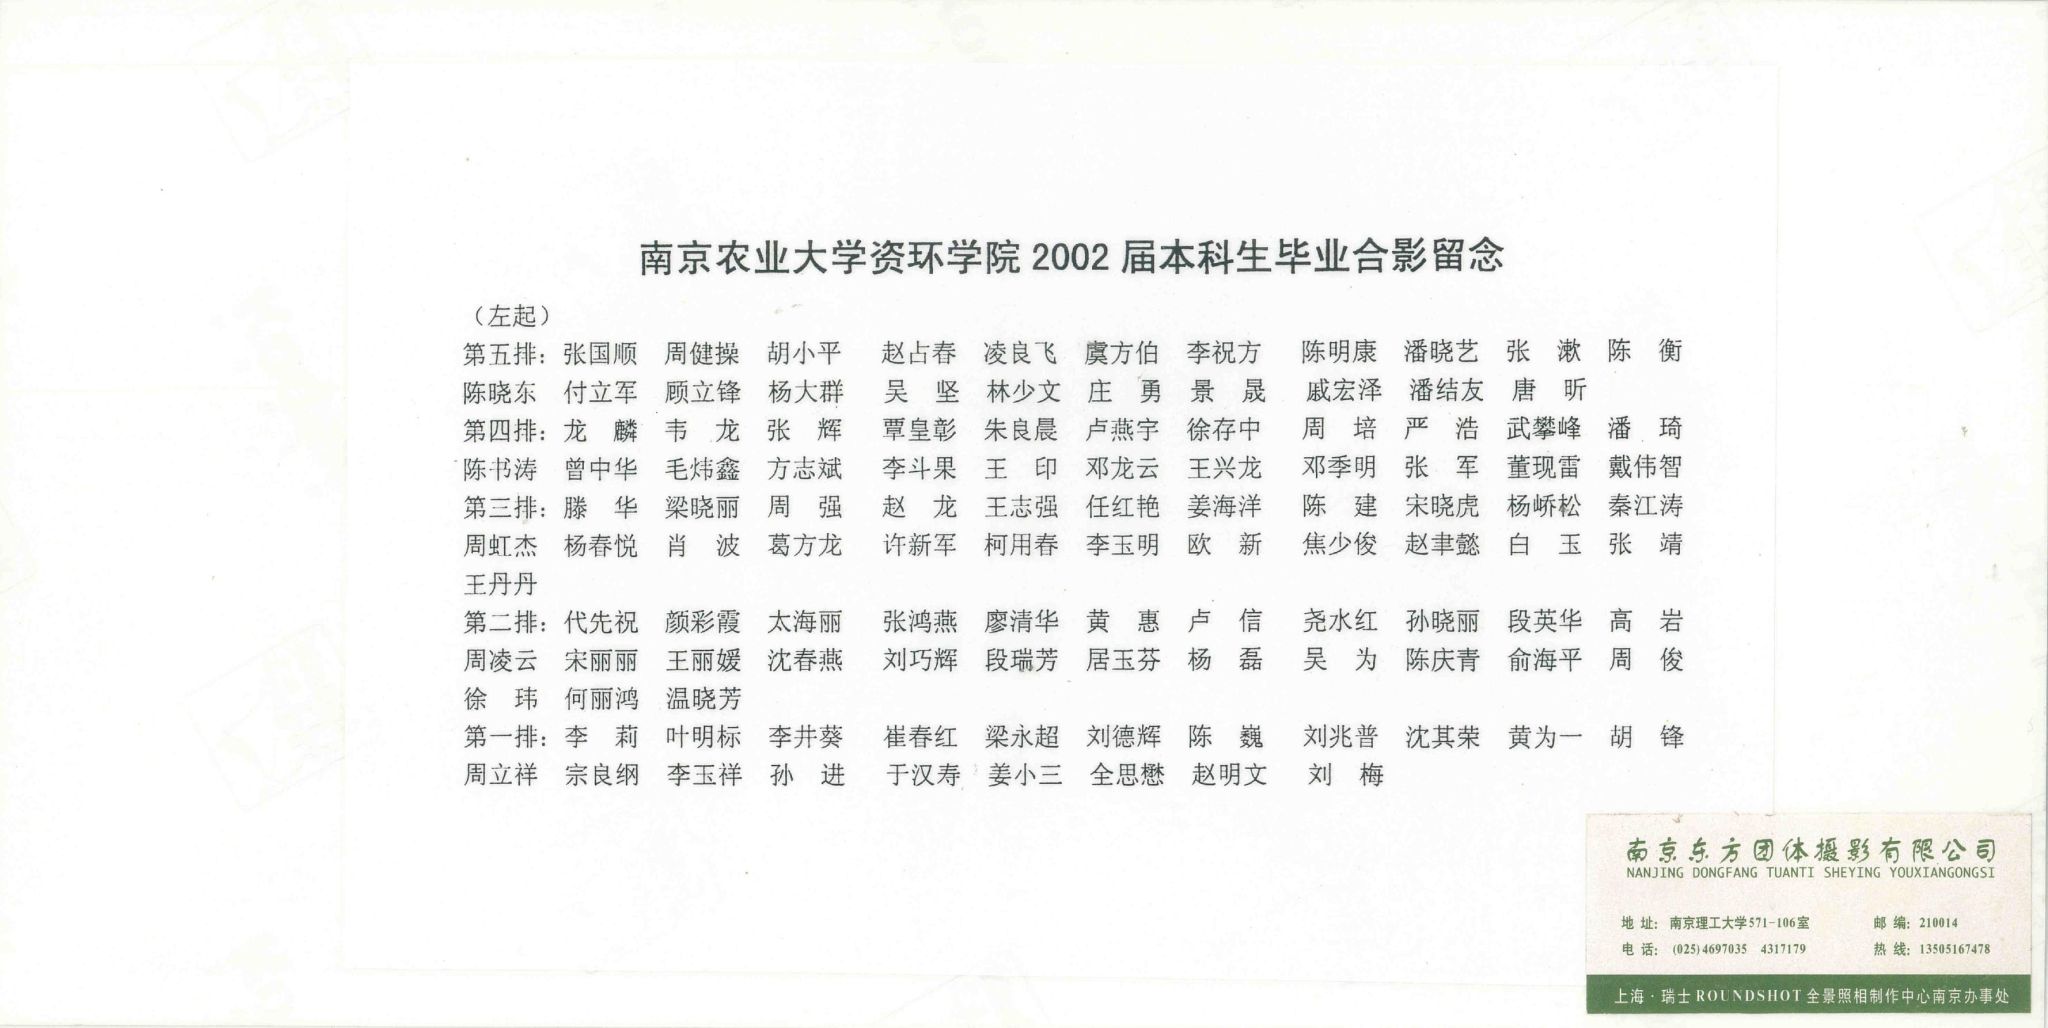 南京农业大学资环学院 2002 届本科生毕业合影留念
（左起）
第五排：张国顺 周健操 胡小平 赵占春 凌良飞 虞方伯 李祝方 陈明康 潘晓艺 张 漱 陈 衡
陈晓东 付立军 顾立锋 杨大群 吴 坚 林少文 庄 勇 景 晟 戚宏泽 潘结友 唐 昕
第四排：龙 麟 韦 龙 张 辉 覃皇彰 朱良晨 卢燕宇 徐存中 周 培 严 浩 武攀峰 潘 琦
陈书涛 曾中华 毛炜鑫 方志斌 李斗果 王 印 邓龙云 王兴龙 邓季明 张 军 董现雷 戴伟智
第三排：滕 华 梁晓丽 周 强 赵 龙 王志强 任红艳 姜海洋 陈 建 宋晓虎 杨峤松 秦江涛
周虹杰 杨春悦 肖 波 葛方龙 许新军 柯用春 李玉明 欧 新 焦少俊 赵聿懿 白 玉 张 靖
王丹丹
第二排：代先祝 颜彩霞 太海丽 张鸿燕 廖清华 黄 惠 卢 信 尧水红 孙晓丽 段英华 高 岩
周凌云 宋丽丽 王丽媛 沈春燕 刘巧辉 段瑞芳 居玉芬 杨 磊 吴 为 陈庆青 俞海平 周 俊
徐 玮 何丽鸿 温晓芳
第一排：李 莉 叶明标 李井葵 崔春红 梁永超 刘德辉 陈 巍 刘兆普 沈其荣 黄为一 胡 锋
周立祥 宗良纲 李玉祥 孙 进 于汉寿 姜小三 全思懋 赵明文 刘 梅
南京东方团体摄影有限公司
NANJING DONGFANG TUANTI SHEYING YOUXIANGONGSI
地 址：南京理工大学571-106室 邮 编：210014
电 话：(025)4697035 4317179 热 线：13505167478
上海·瑞士ROUNDSHOT全景照相制作中心南京办事处